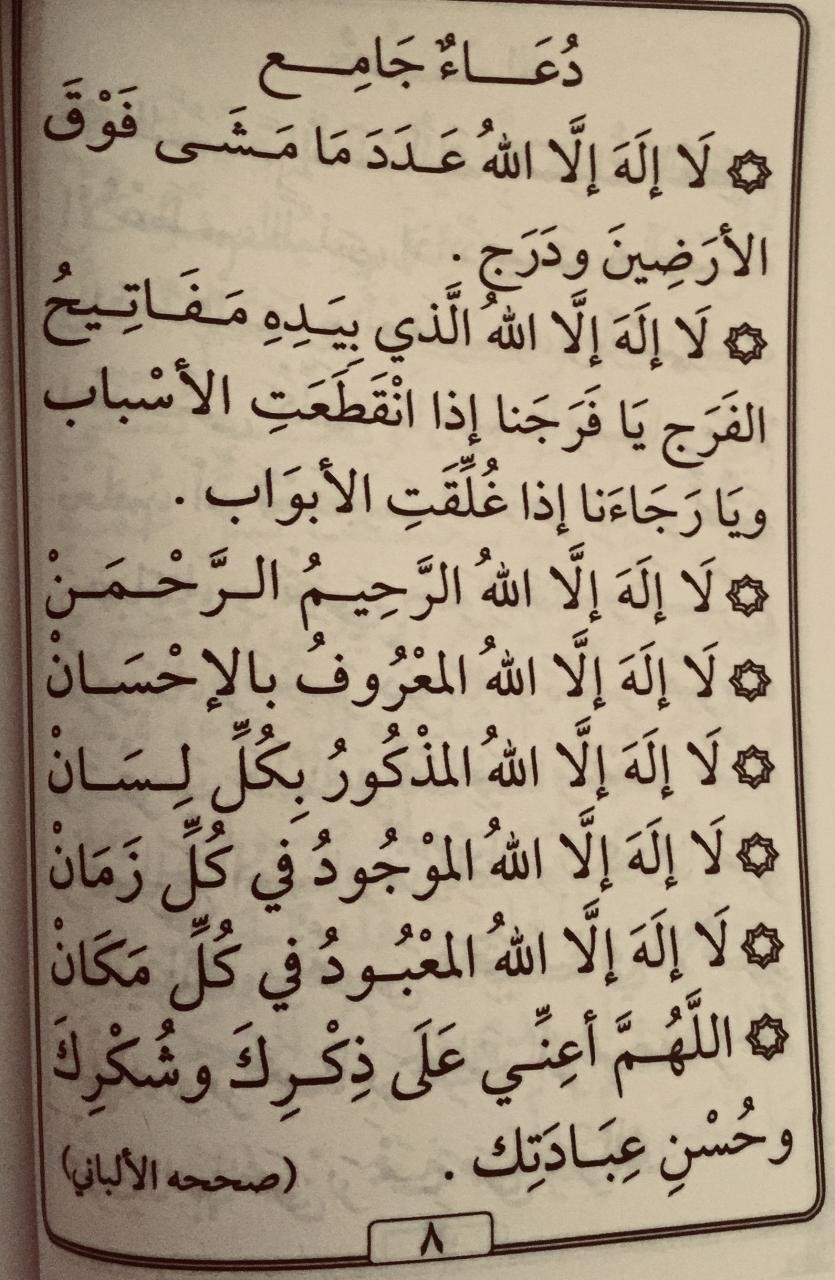 دُعَـــاءٌ جَامِـــع
۞ لَا إِلَهَ إِلَّا اللهُ عَـدَدَ مَا مَـشَـى فَوْقَ
الأرَضِينَ ودَرَج .
۞ لَا إِلَهَ إِلَّا اللهُ الَّذي بِيَـدِهِ مَـفَـاتِـيحُ
الفَرَج يَا فَرَجَنا إذا انْقَطَعَتِ الأسْباب
ويَا رَجَاءَنا إذا غُلِّقَتِ الأبوَاب .
۞ لَا إِلَهَ إِلَّا اللهُ الرَّحِيـمُ الـرَّحْـمَـنْ
۞ لَا إِلَهَ إِلَّا اللهُ المعْرُوفُ بالإحْسَـانْ
۞ لَا إِلَهَ إِلَّا اللهُ المذْكُورُ بِكُلِّ لِـسَـانْ
۞ لَا إِلَهَ إِلَّا اللهُ الموْجُودُ في كُلِّ زَمَانْ
۞ لَا إِلَهَ إِلَّا اللهُ المعْبُـودُ في كُلِّ مَكَانْ
۞ اللَّهُـمَّ أعِنِّـي عَلَى ذِكْـرِكَ وشُكْرِكَ
وحُسْنِ عِبَـادَتِك . (صححه الألباني)
٨